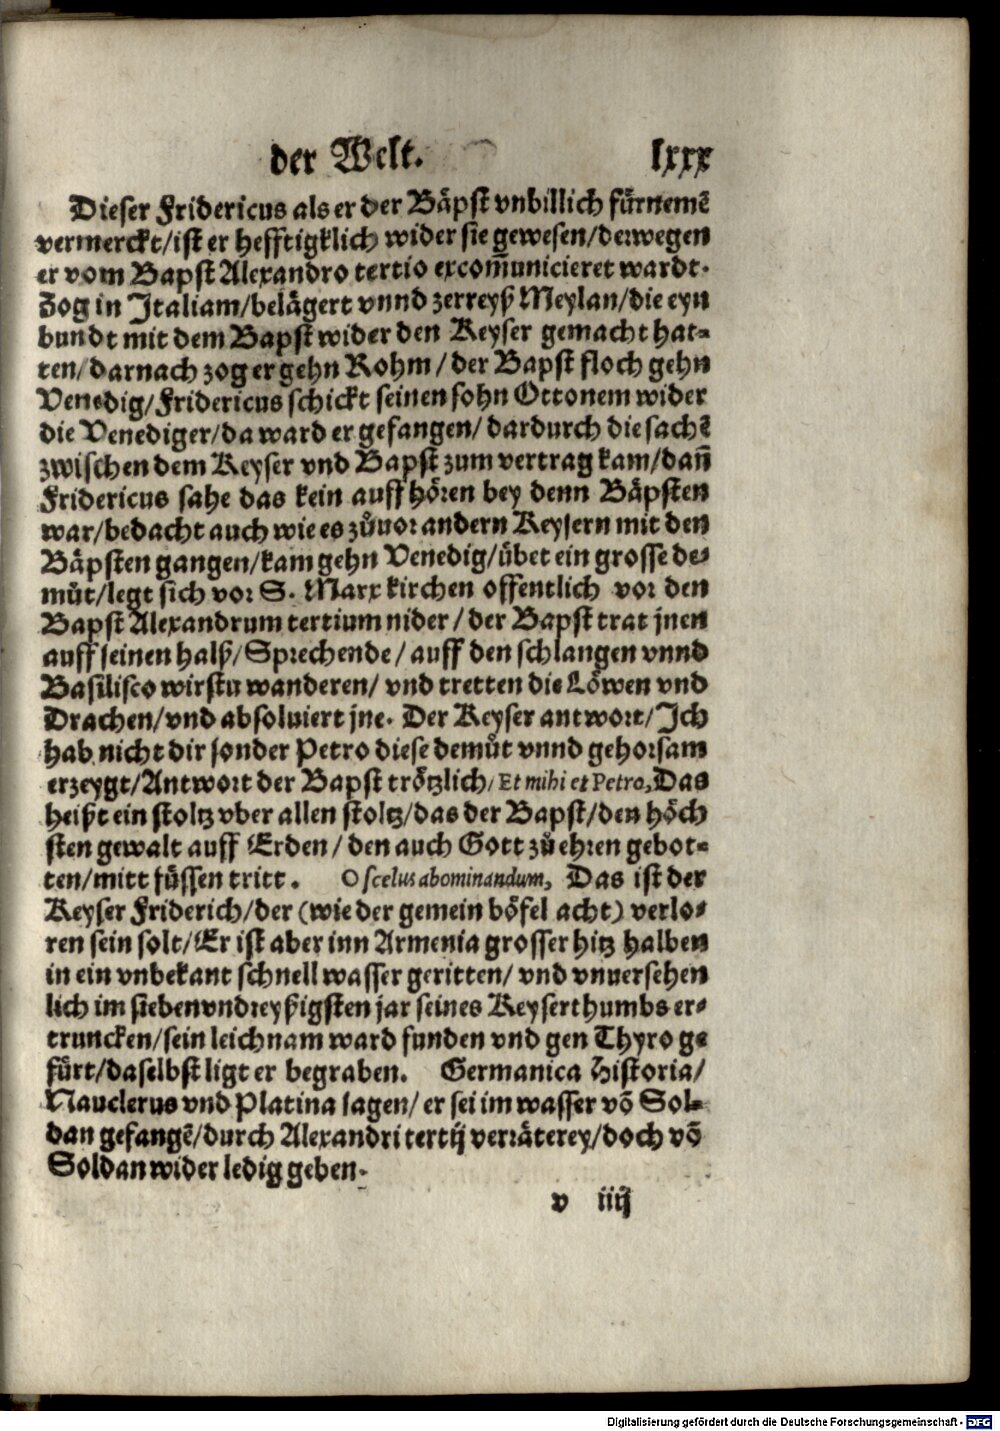 der Welt. lxxx
Dieser Fridericus als er der Bäpst vnbillich fürnemē
vermerckt/ist er hefftigklich wider sie gewesen/derwegen
er vom Bapst Alexandro tertio excom̄unicieret wardt.
Zog in Italiam/belägert vnnd zerreyß Meylan/die eyn
bundt mit dem Bapst wider den Keyser gemacht hat-
ten/darnach zog er gehn Rohm/der Bapst floch gehn
Venedig/Fridericus schickt seinen sohn Ottonem wider
die Venediger/da ward er gefangen/dardurch die sachē
zwischen dem Keyser vnd Bapst zum vertrag kam/dañ
Fridericus sahe das kein auff hören bey denn Bäpsten
war/bedacht auch wie es zůuor andern Keysern mit den
Bäpsten gangen/kam gehn Venedig/übet ein grosse de-
můt/legt sich vor S. Marx kirchen offentlich vor den
Bapst Alexandrum tertium nider/der Bapst trat jnen
auff seinen halß/Sprechende/auff den schlangen vnnd
Basilisco wirstu wanderen/vnd tretten die Löwen vnd
Drachen/vnd absoluiert jne. Der Keyser antwort/Ich
hab nicht dir sonder Petro diese demůt vnnd gehorsam
erzeygt/Antwort der Bapst trötzlich, Et mihi et Petro, Das
heißt ein stoltz vber allen stoltz/das der Bapst/den höch
sten gewalt auff Erden/den auch Gott zů ehren gebot-
ten/mitt füssen tritt. O scelus abominandum, Das ist der
Keyser Friderich/der (wie der gemein böfel acht) verlo-
ren sein solt/Er ist aber inn Armenia grosser hitz halben
in ein vnbekant schnell wasser geritten/vnd vnuersehen
lich im siebenvndreyßigsten jar seines Keyserthumbs er-
truncken/sein leichnam ward funden vnd gen Thyro ge
fürt/daselbst ligt er begraben. Germanica Historia/
Nauclerus vnd Platina sagen/er sei im wasser vō Sol-
dan gefangē/durch Alexandri tertij verräterey/doch vō
Soldan wider ledig geben.
v iiij
Digitalisierung gefördert durch die Deutsche Forschungsgemeinschaft - DFG